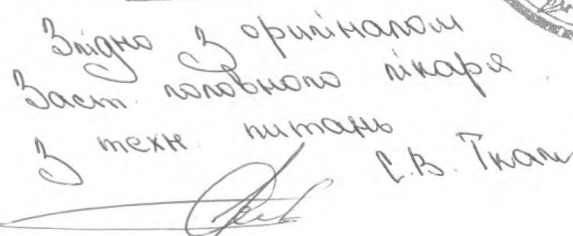 Згідно з оригіналом
Заст. головного лікаря
З техн. питань
С.В. Ткач